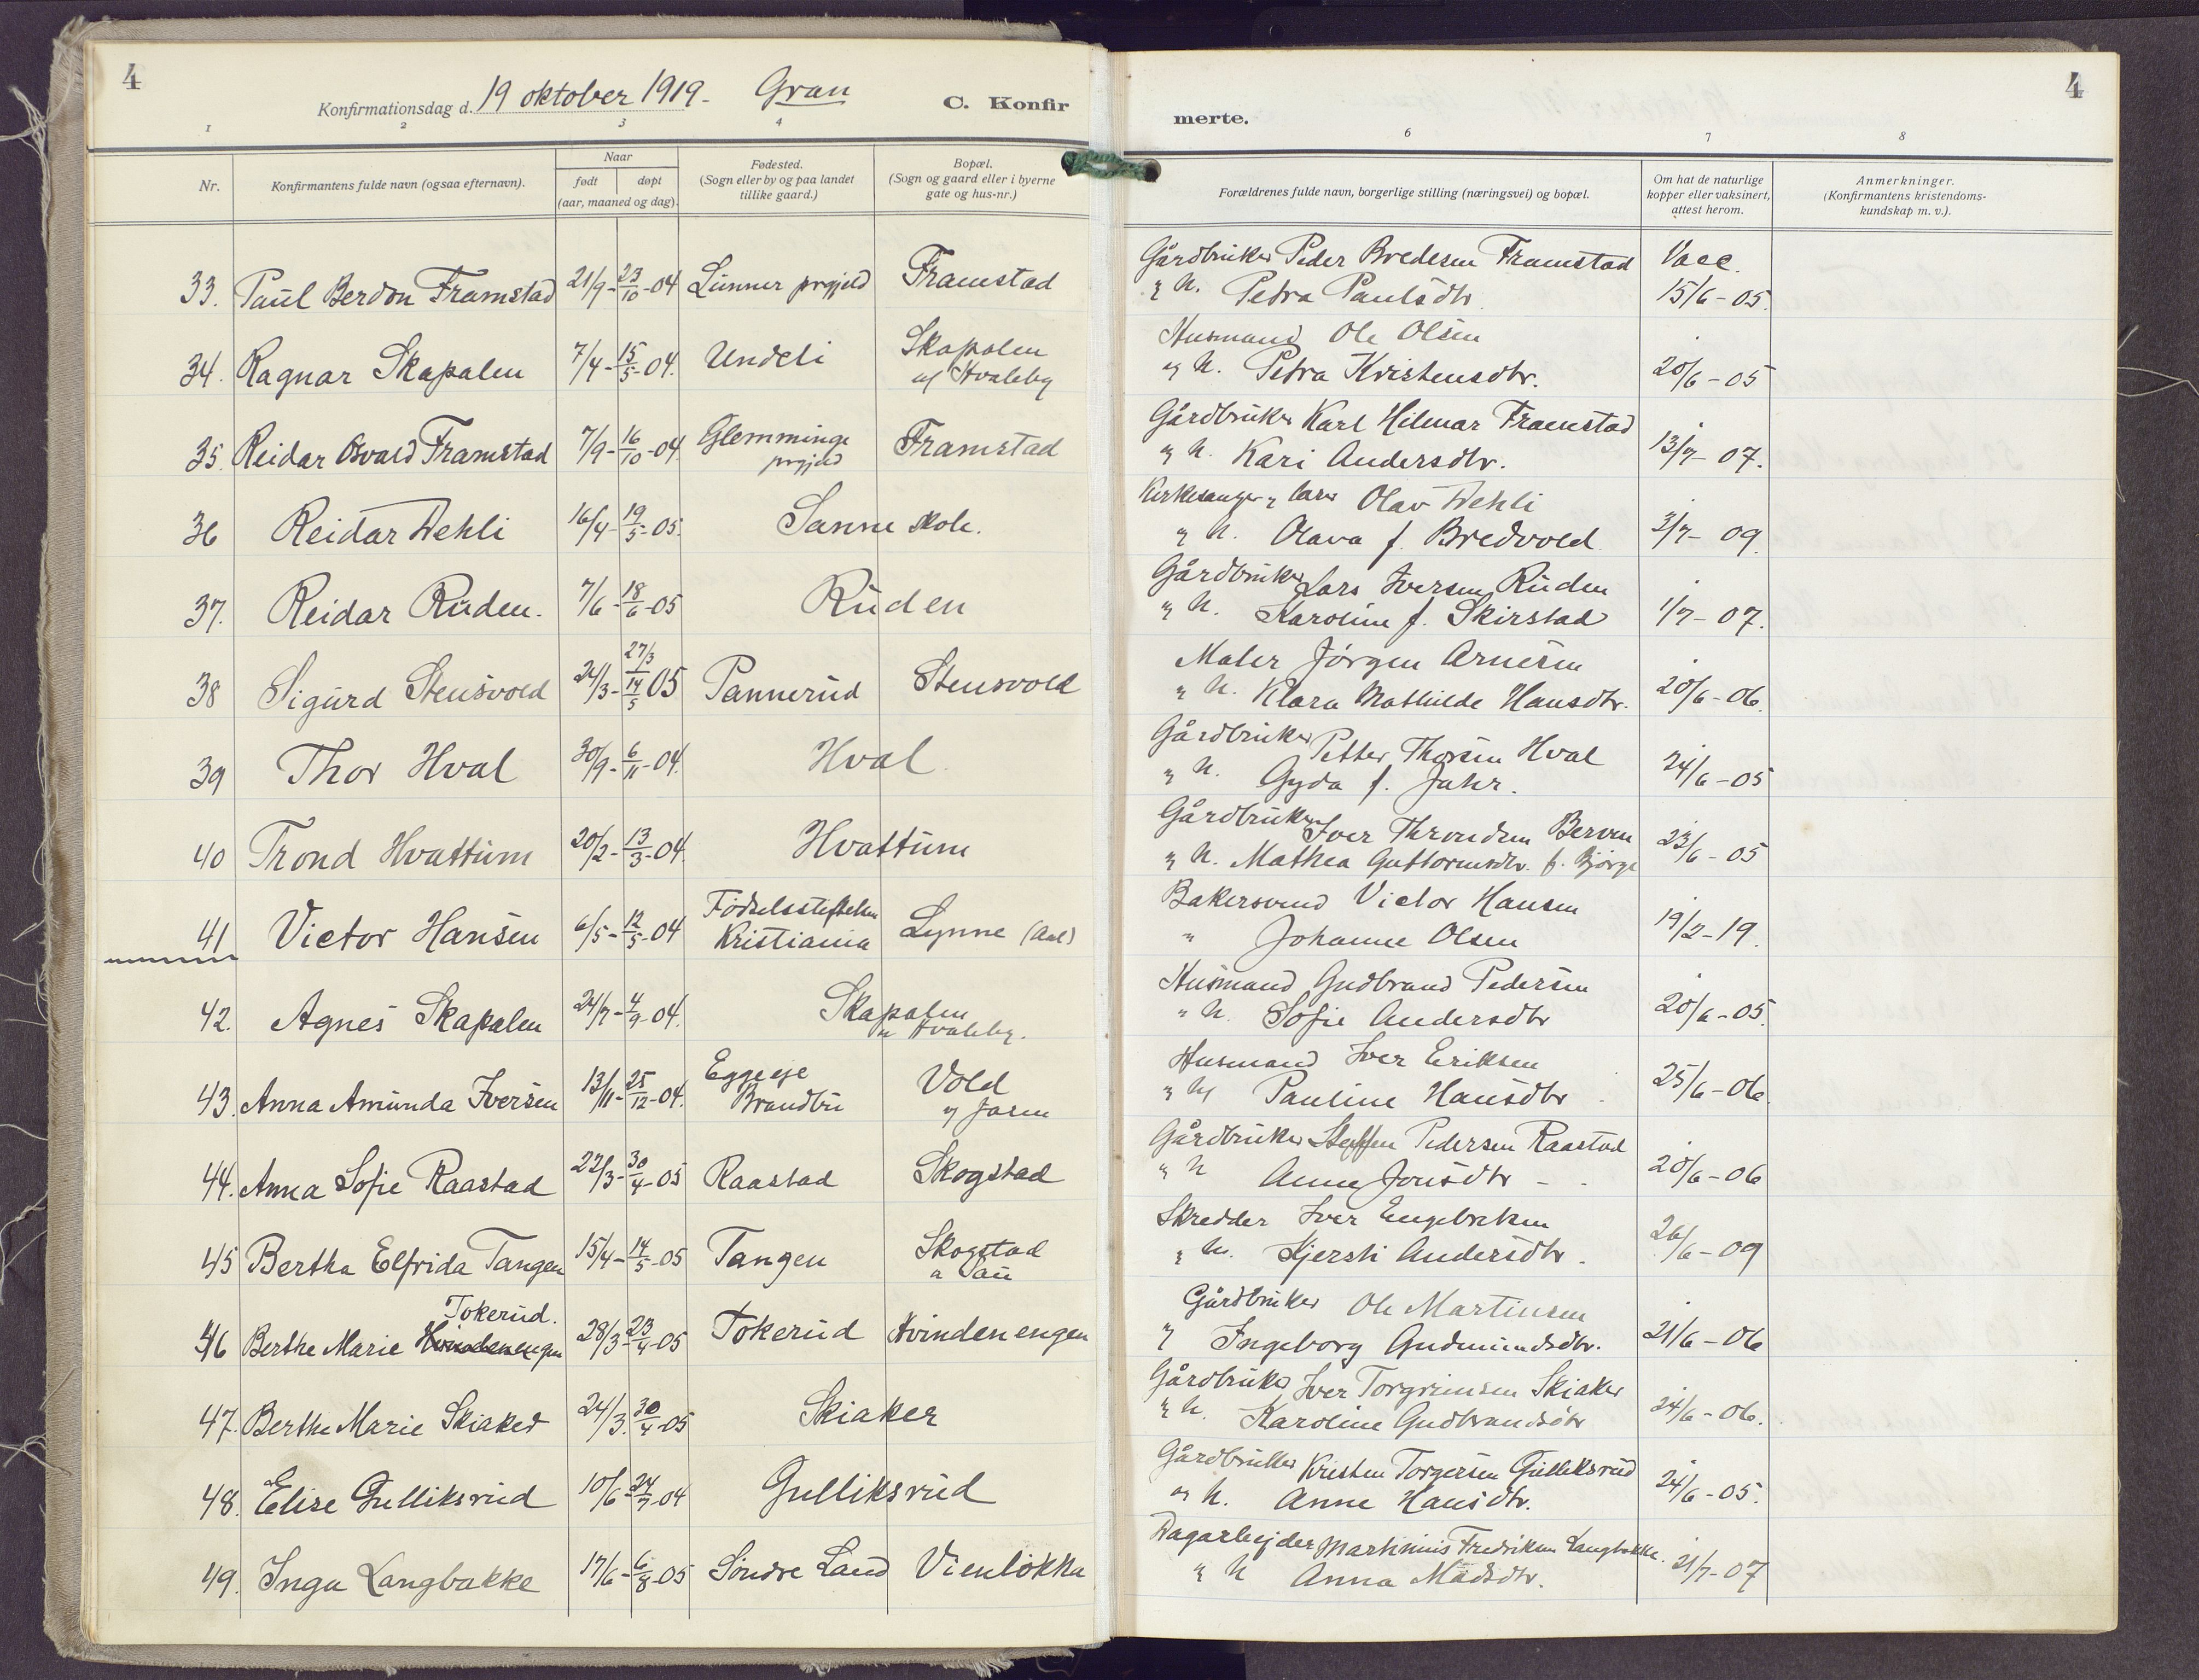 4
Konfirmationsdag d. 19 oktober 1919. Gran
C. Konfir
merte.
4
1 2 3 4
6 7 8
Nr.
Konfirmantens fulde navn (ogsaa efternavn).
Naar
født døpt
(aar, maaned og dag).
Fødested.
(Sogn eller by og paa landet
tillike gaard.)
Bopæl.
(Sogn og gaard eller i byerne
gate og hus-nr.)
Forældrenes fulde navn, borgerlige stilling (næringsvei) og bopæl.
Om hat de naturlige
kopper eller vaksinert,
attest herom.
Anmerkninger.
(Konfirmantens kristendoms-
kundskap m. v.).
33. Paul Berdon Framstad 21/9 - 23/10 - 04 Lunner prgjeld Framstad
Gårdbruker Peder Bredesen Framstad
og h. Petra Paulsdtr
Vacc.
15/6 - 05.
34. Ragnar Skapalen 7/4 - 15/5 - 04. Undeli Skapalen
u/ Hvaleby
Husmand Ole Olsen
og h. Petra Kristensdtr.
20/6 - 05
35. Reidar Osvald Framstad 7/9 - 16/10 - 04 Glemminge
prgjeld
Framstad
Gårdbruker Karl Hilmar Framstad
og h. Kari Andersdtr.
13/7 - 07.
36 Reidar Wehli 16/4 - 19/5 - 05. Sanne skole.
Kirkesanger og lærer Olav Wehli
og h. Olava f. Bredvold
3/7 - 09.
37. Reidar Ruden. 7/6 - 18/6 - 05 Ruden
Gårdbruker Lars Iversen Ruden
og h. Karoline f. Skirstad
1/7 - 07.
38 Sigurd Stensvold 24/3 - 27/3 14/5 05 Pannerud Stensvold
Maler Jörgen Arnesen
og h. Klara Mathilde Hansdtr.
20/6 - 06.
39 Thor Hval 30/9 - 6/11 - 04. Hval
Gårdbruker Petter Thorsen Hval
og h. Gyda f. Jahr.
24/6 - 05
40 Trond Hvattum 20/2 - 13/3 - 04. Hvattum
Gårdbruker Iver Throndsen Berven
og h. Mathea Guttormsdtr. f. Bjørge
23/6 - 05
41 Victor Hansen 6/5 - 12/5 - 04 Födselsstiftelsen
Kristiania
Lynne (Aal)
Bakersvend Victor Hansen
" Johanne Olsen
19/2 - 19.
42. Agnes Skapalen 24/7 - 4/9 - 04. Skapalen
u Hvaleby.
Husmand Gudbrand Pedersen
" h. Sofie Andersdtr
20/6 - 05.
43. Anna Amunda Iversen 13/11 - 25/12 - 04. Egge eje
Brandbu
Vold
u/ Jaren
Husmand Iver Eriksen
og h/ Pauline Hansdtr
25/6 - 06.
44. Anna Sofie Raastad 22/3 - 30/4 - 05 Raastad Skogstad
Gårdbruker Steffen Pedersen Raastad
" h Anne Jonsdtr - -
20/6 - 06
45 Bertha Elfrida Tangen 15/4 - 14/5 - 05 Tangen Skogstad
a Sau
Skredder Iver Engebretsen
og h. Kjersti Andersdtr.
26/6 - 09
46 Berthe Marie Hvindenengen
Tokerud.
28/3 - 23/4 - 05 Tokerud Hvindenengen
Gårdbruker Ole Martinsen
og Ingeborg Gudmundsdtr.
21/6 - 06
47. Berthe Marie Skiaker 24/3. 30/4 - 05 Skiaker
Gårdbruker Iver Torgrimsen Skiaker
og h. Karoline Gudbrandsdtr
24/6 - 06.
48. Elise Gulliksrud 10/6 - 24/7 - 04 Gulliksrud
Gårdbruker Kristen Torgersen Gulliksrud
og h. Anne Hansdtr.
24/6 - 05.
49. Inga Langbakke 17/6 - 6/8 - 05 Söndre Land Vienlökka
Dagarbejder Martinius Fredriksen Langbakke.
og h Anna Madsdtr.
21/7 - 07